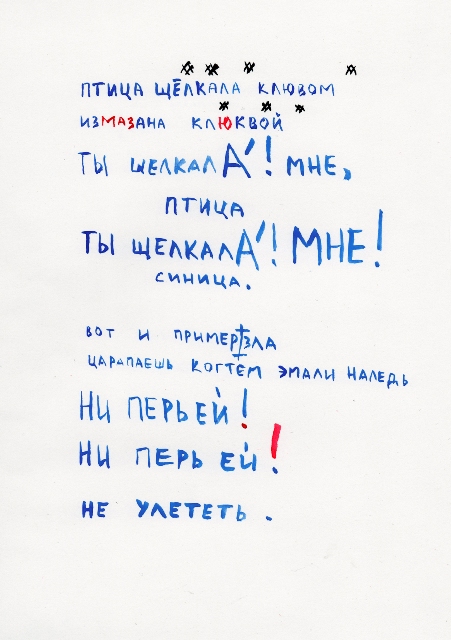 ПТИЦА ЩЁЛКАЛА КЛЮВОМ
ИЗМАЗАНА КЛЮКВОЙ
ТЫ ЩЕЛКАЛА́! МНЕ,
ПТИЦА
ТЫ ЩЕЛКАЛА́! МНЕ!
СИНИЦА.
ВОТ И ПРИМЕРЗЛА
ЦАРАПАЕШЬ КОГТЕМ ЭМАЛИ НАЛЕДЬ
НИ ПЕРЬЕЙ!
НИ ПЕРЬЕЙ!
НЕ УЛЕТЕТЬ.